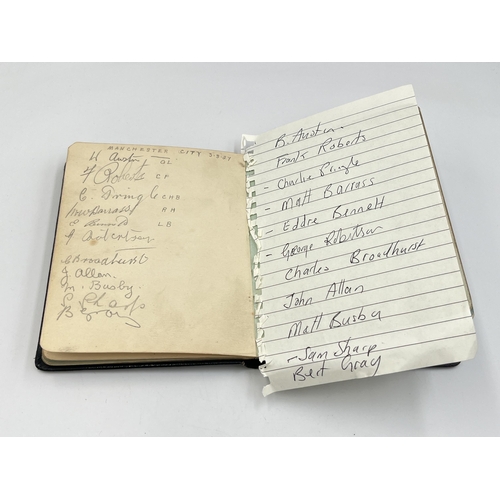 MANCHESTER CITY
Austin OL
F Roberts CF
C. Pringle CHB
M W Barrass RH
E Bennett LB
G Robertson
C Broadhurst
J Allan.
M. Busby.
S Sharp
B Gray
B. Austin
Frank Roberts
- Charlie Pringle
- Matt Barrass
- Eddie Bennett
- George Robertson
Charles Broadhurst
John Allan
Matt Busby
- Sam Sharp
Bert Gray